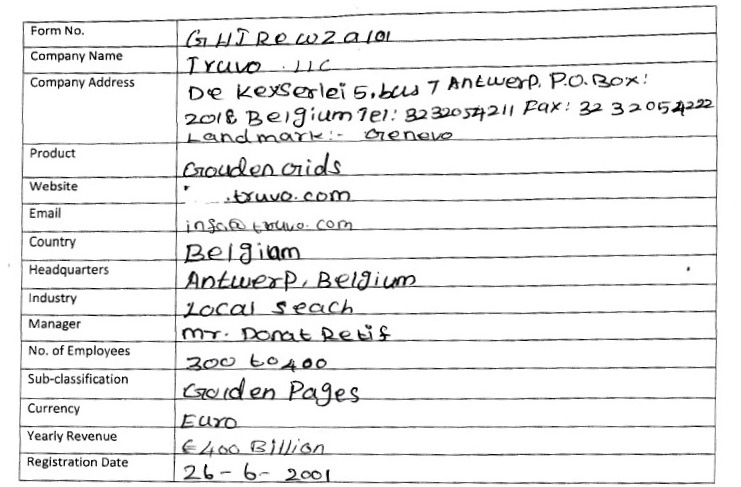 Form No. GHIRewza101
Company Name Truvo LLC
Company Address De Keyserlei 5, bus 7 Antwerp. P.O. Box:
2018 Belgium Tel: 3232054211 Fax: 32 32054222
Landmark:- Genevo
Product Gouden Gids
Website .truvo.com
Email info@truvo.com
Country Belgium
Headquarters Antwerp, Belgium
Industry Local Seach
Manager Mr. Donat Retif
No. of Employees 300 to 400
Sub-classification Golden Pages
Currency Euro
Yearly Revenue €400 Billion
Registration Date 26-6-2001